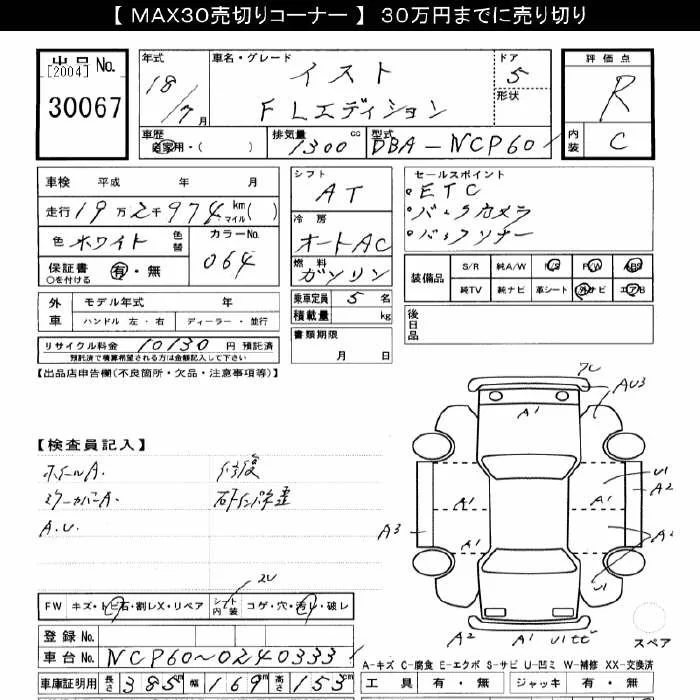 【 MAX30売切りコーナー 】 30万円までに売り切り
出品 No. [2004]
30067
年式 18/7 月
車名・グレード イスト
FLエディション
ドア 5
形状
評価点 R
内装 C
車歴 自家用・( )
排気量 1300 cc
型式 DBA-NCP60
車検 平成 年 月
走行 19万2千974 km マイル( )
色 ホワイト 色替
カラーNo. 064
保証書 有・無
○を付ける
シフト AT
冷房 オートAC
燃料 ガソリン
乗車定員 5 名
積載量 kg
書類期限
月 日
セールスポイント
・ETC
・バックカメラ
・バックソナー
装備品 S/R 純A/W P/S P/W ABS
純TV 純ナビ 革シート 外ナビ エアB
後日品
外車 モデル年式 年
ハンドル 左・右 ディーラー・並行
リサイクル料金 10130 円 預託済
預託済で積算希望される方は金額記入して下さい
【出品店申告欄(不良箇所・欠品・注意事項等)】
【検査員記入】
ホイールA. 修復
A.U.
7U
AU3
A1
U1
A2
A1
A1
A3
A1
A2
U1
A2
A1
スペア
FW キズ・トビ石・割レX・リペア シート内装 コゲ・穴・汚レ・破レ
2U
登録 No.
車台 No. NCP60~0240333
車庫証明用 長さ 385 cm 幅 169 cm 高さ 153 cm
A-キズ C-腐食 E-エクボ S-サビ U-凹ミ W-補修 XX-交換済
工具 有・無 ジャッキ 有・無